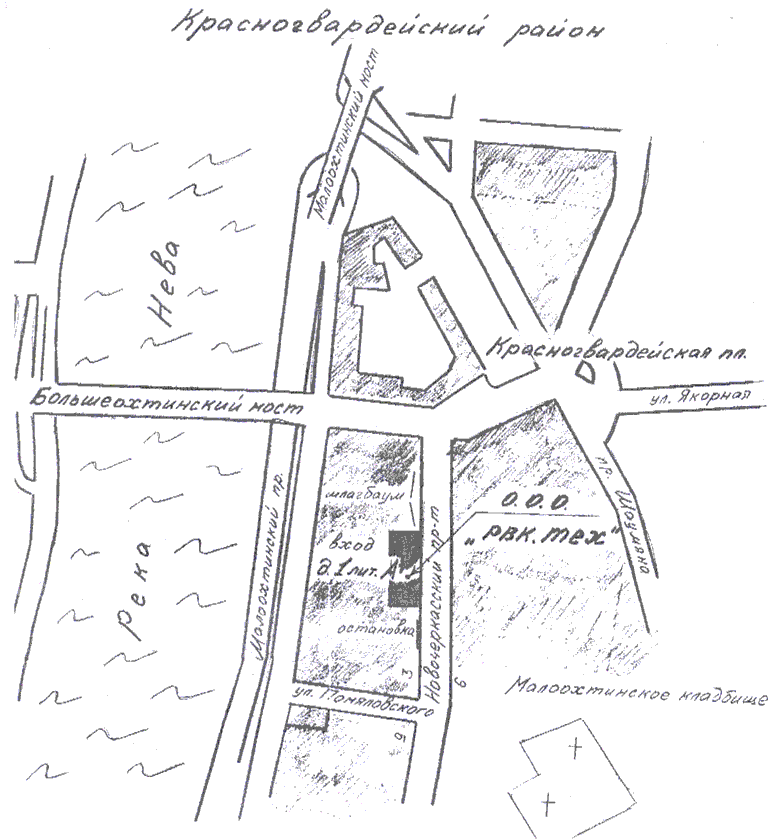 Красногвардейский район
Малоохтинский мост
Малоохтинский мост
Нева
Красногвардейская пл.
Большеохтинский мост
ул. Якорная
пр. Шаумяна
Малоохтинский пр.
шлагбаум
О.О.О.
„РВК.тех"
вход
д.1 лит. А-1
Новочеркасский пр-т
Река
остановка
3
6
ул. Помяловского
9
Малоохтинское кладбище